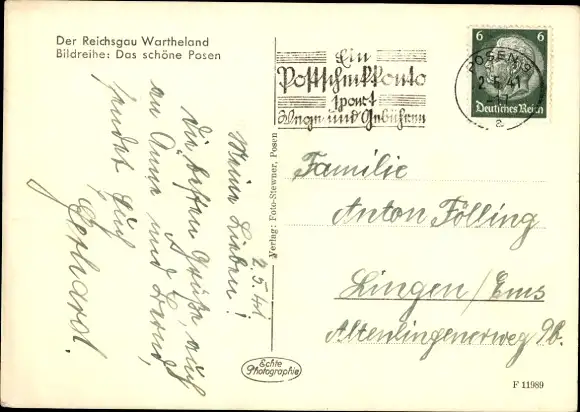 Der Reichsgau Wartheland
Bildreihe: Das schöne Posen
Ein
Postscheckkonto
spart
Wege und Gebühren
POSEN 9
2.5.41
a
6 6
Deutsches Reich
2.5.41
Meine Lieben!
Die besten Grüße, auch
an Anne und
sendet Euch
Gerhard.
Verlag: Foto-Stewner, Posen
Familie
Anton Fölling
Lingen/Ems
Altenlingenerweg 9b.
Echte
Photographie
F 11989